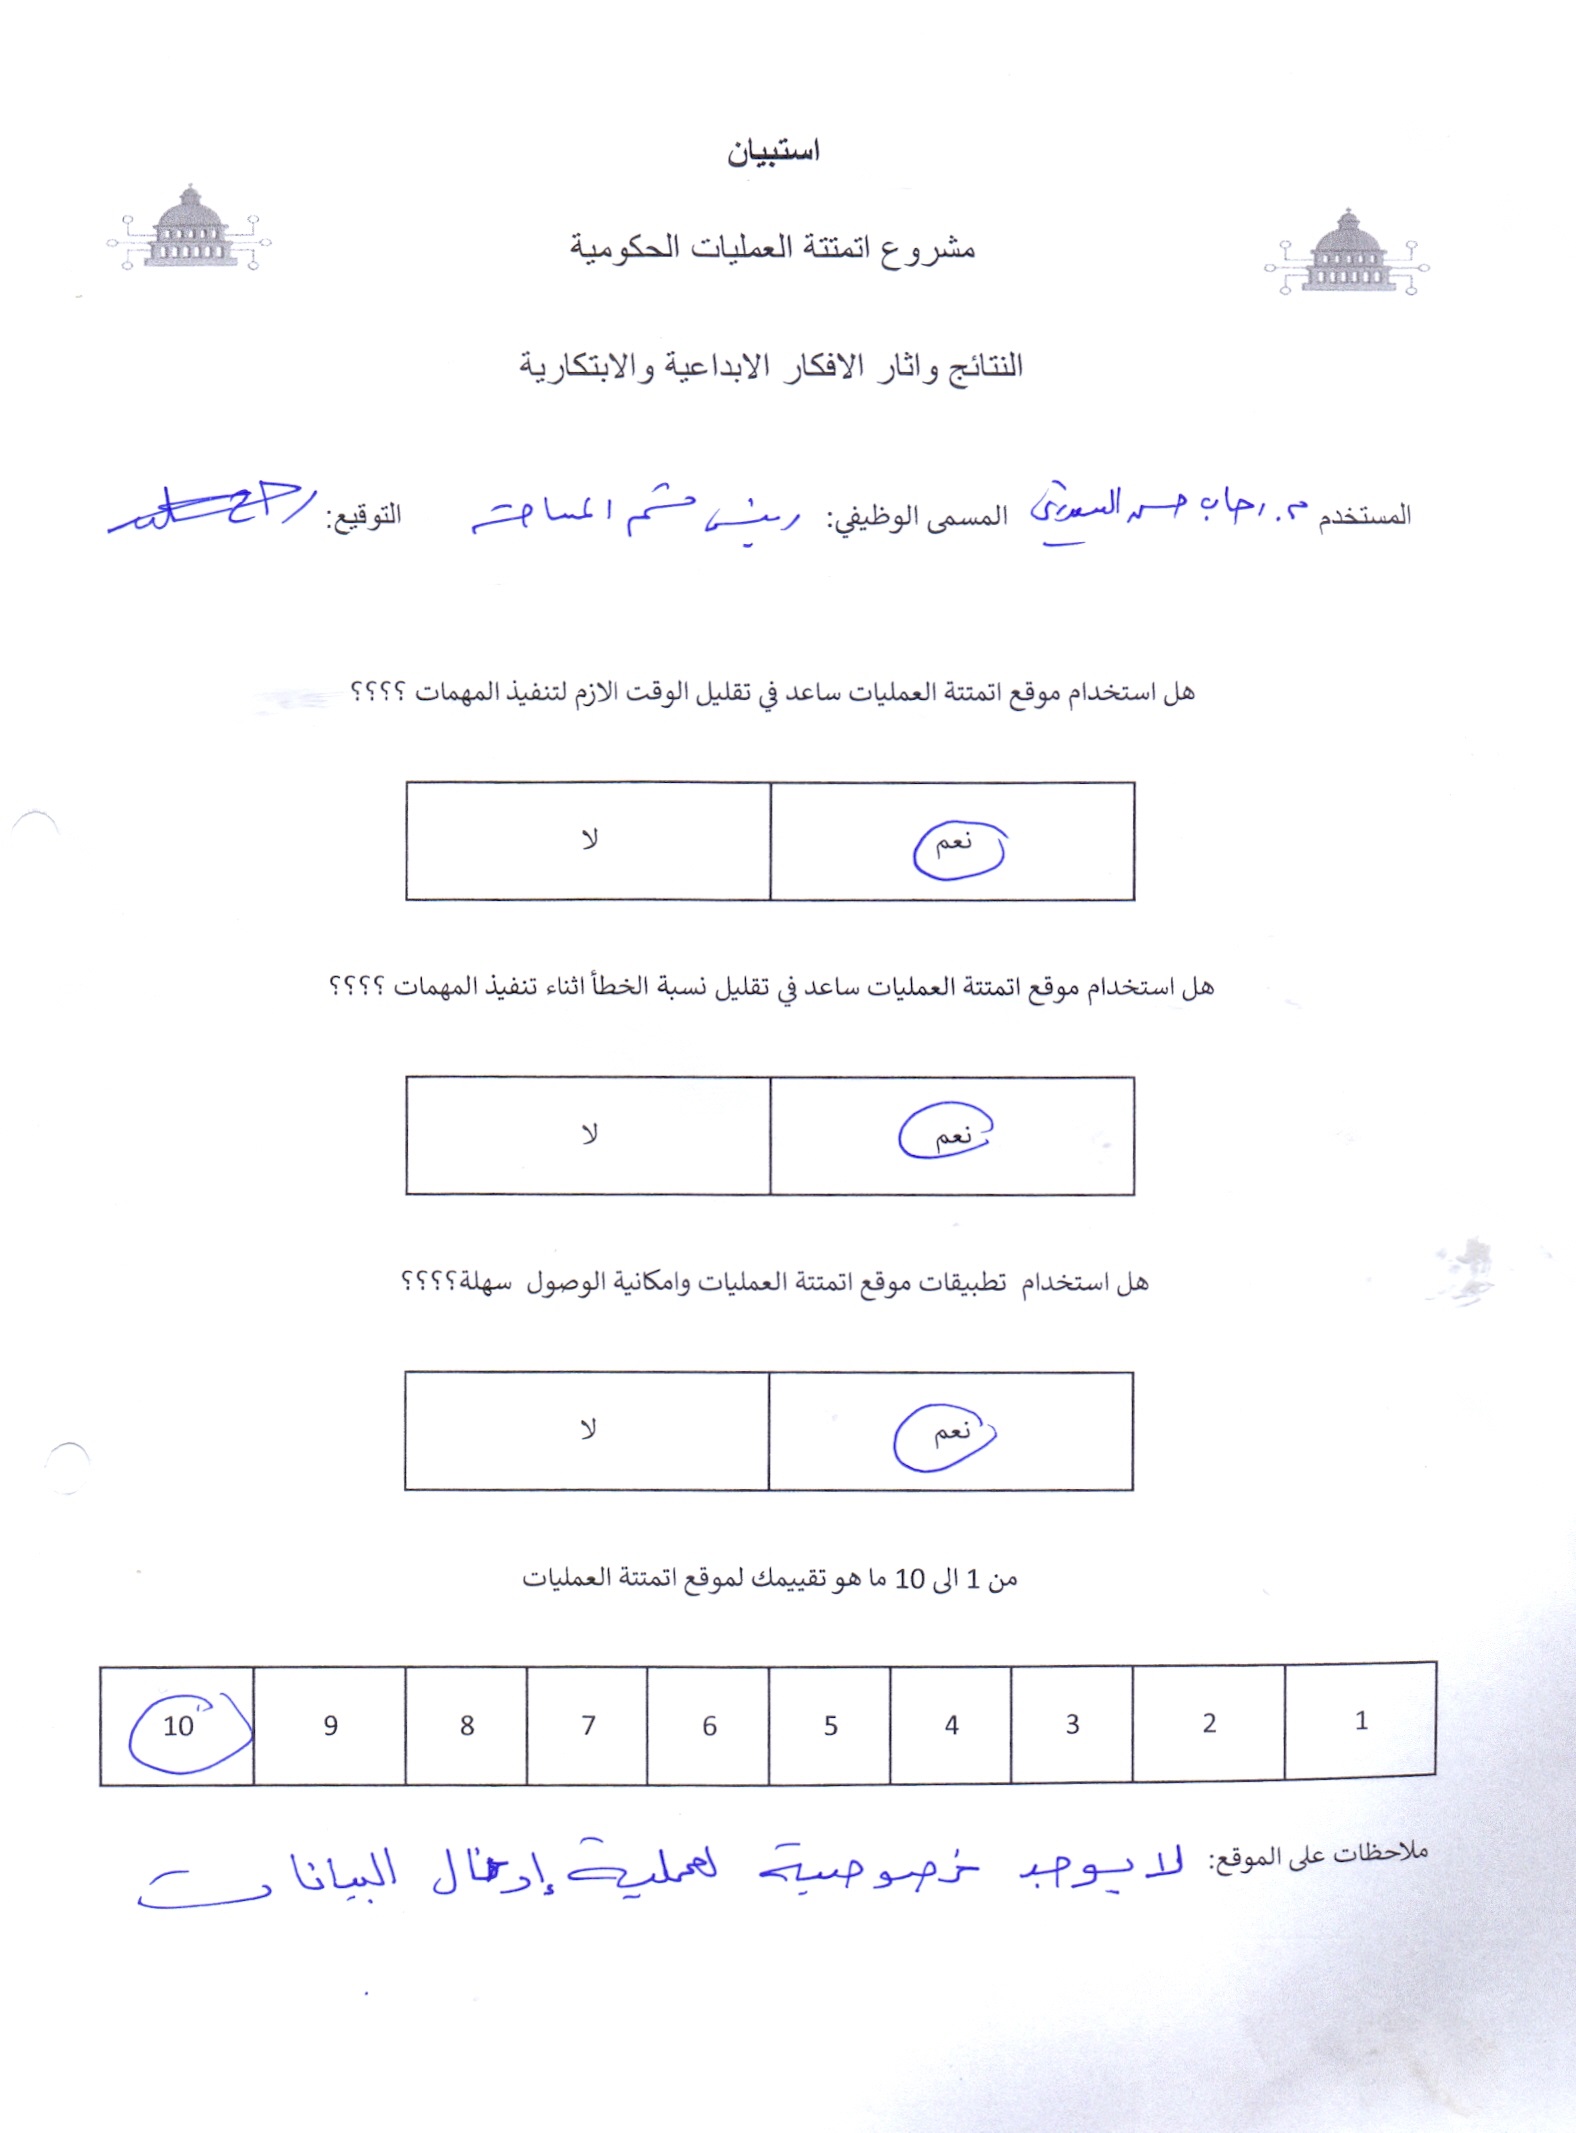 استبيان
مشروع اتمتتة العمليات الحكومية
النتائج واثار الافكار الابداعية والابتكارية
المستخدم م. رحاب حسن المسمى الوظيفي: رئيس قسم المساحة التوقيع:
هل استخدام موقع اتمتتة العمليات ساعد في تقليل الوقت الازم لتنفيذ المهمات ؟؟؟؟
نعم لا
هل استخدام موقع اتمتتة العمليات ساعد في تقليل نسبة الخطأ اثناء تنفيذ المهمات ؟؟؟؟
نعم لا
هل استخدام تطبيقات موقع اتمتتة العمليات وامكانية الوصول سهلة؟؟؟؟
نعم لا
من 1 الى 10 ما هو تقييمك لموقع اتمتتة العمليات
1 2 3 4 5 6 7 8 9 10
ملاحظات على الموقع: لا يوجد خصوصية لعملية إدخال البيانات